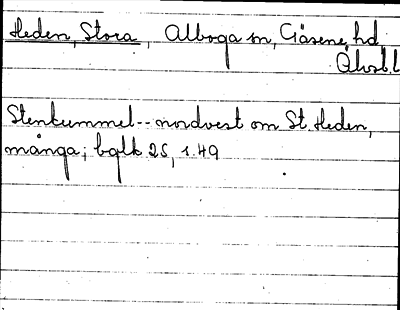 Heden, Stora, Alboga sn, Gäsene hd
Älvsb.l
Stenkummel -- nordvest om St. Heden,
många; bglk 25, 1.49